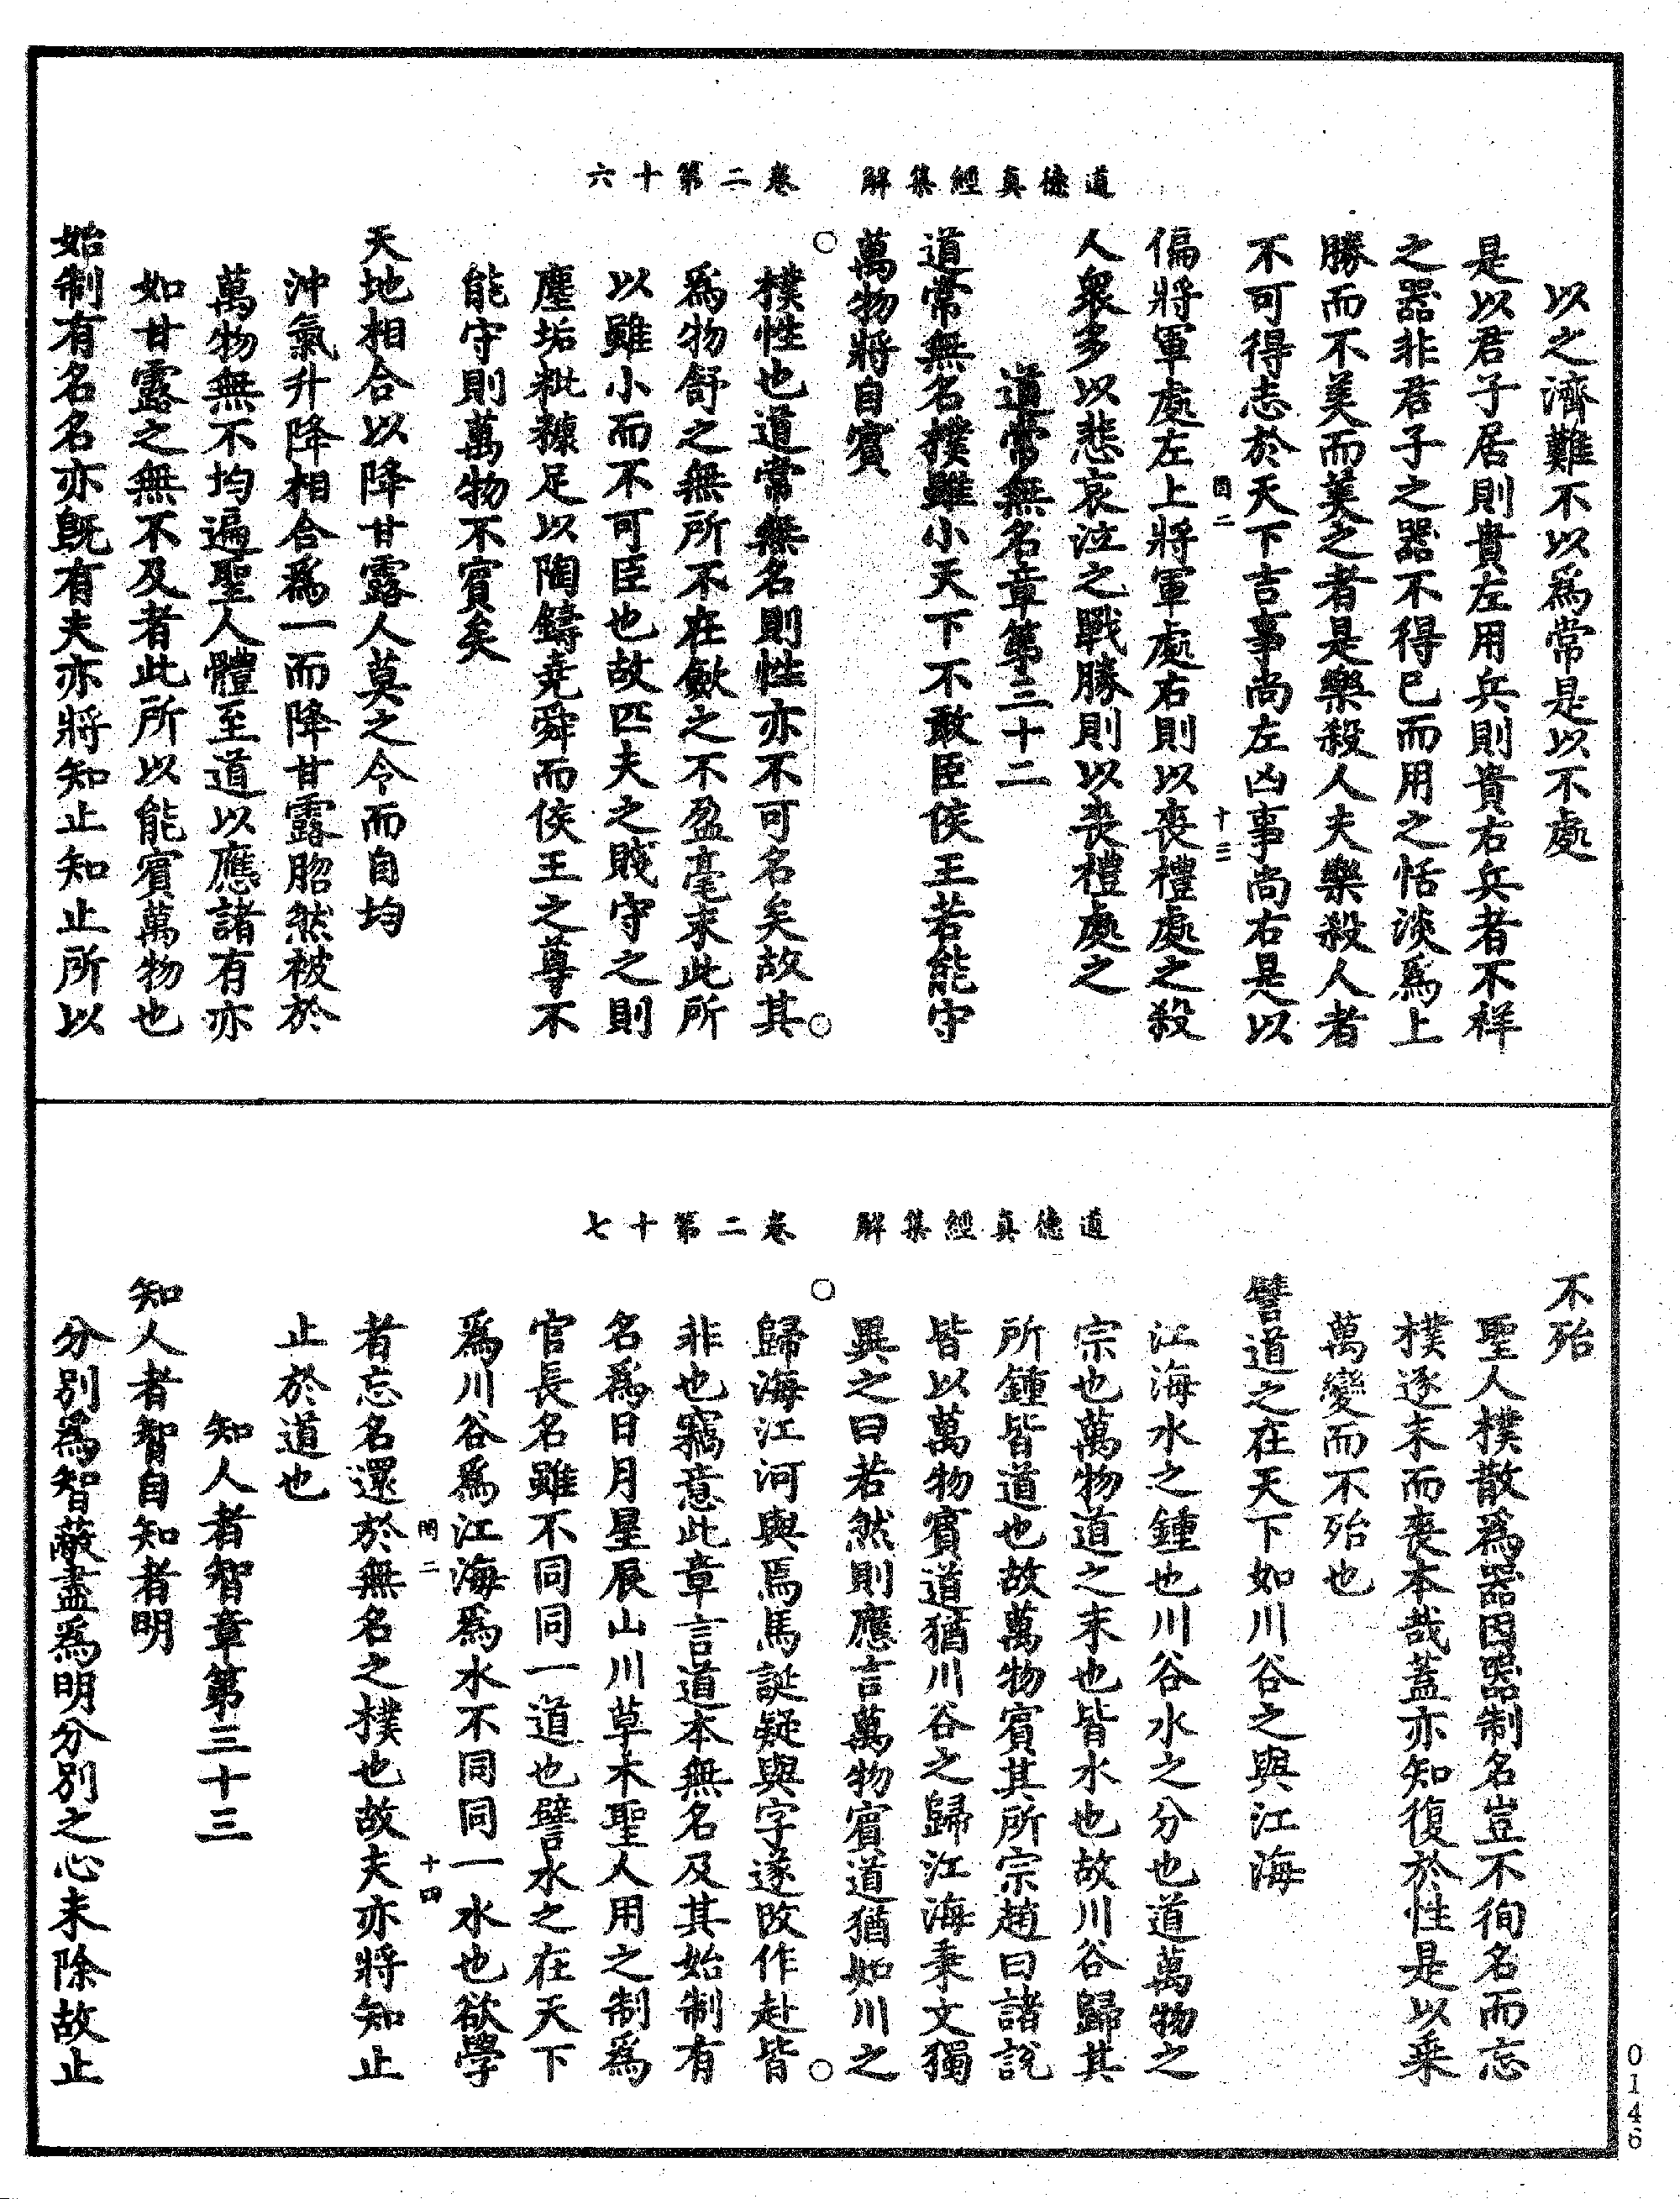 道德真經集解　卷二第十六
以之濟難不以爲常是以不處
是以君子居則貴左用兵則貴右兵者不祥
之器非君子之器不得已而用之恬淡爲上
勝而不美而美之者是樂殺人夫樂殺人者
不可得志於天下吉事尚左凶事尚右是以
二　十三
偏將軍處左上將軍處右則以喪禮處之殺
人衆多以悲哀泣之戰勝則以喪禮處之
道常無名章第三十二
道常無名樸雖小天下不敢臣侯王若能守
萬物將自賓
樸性也道常無名則性亦不可名矣故其
爲物舒之無所不在斂之不盈毫末此所
以雖小而不可臣也故匹夫之賤守之則
塵垢粃糠足以陶鑄堯舜而侯王之尊不
能守則萬物不賓矣
天地相合以降甘露人莫之令而自均
沖氣升降相合爲一而降甘露脗然被於
萬物無不均遍聖人體至道以應諸有亦
如甘露之無不及者此所以能賓萬物也
始制有名名亦既有夫亦將知止知止所以
道德真經集解　卷二第十七
不殆
聖人樸散爲器因器制名豈不徇名而忘
樸逐末而喪本哉蓋亦知復於性是以乘
萬變而不殆也
譬道之在天下如川谷之與江海
江海水之鍾也川谷水之分也道萬物之
宗也萬物道之末也皆水也故川谷歸其
所鍾皆道也故萬物賓其所宗趙曰諸說
皆以萬物賓道猶川谷之歸江海秉文獨
異之曰若然則應言萬物賓道猶如川之
歸海江河與焉馬誕疑與字遂改作赴皆
非也竊意此章言道本無名及其始制有
名爲日月星辰山川草木聖人用之制爲
官長名雖不同同一道也譬水之在天下
爲川谷爲江海爲水不同同一水也欲學
二　十四
者忘名還於無名之樸也故夫亦將知止
止於道也
知人者智章第三十三
知人者智自知者明
分別爲智蔽盡爲明分別之心未除故止
0146